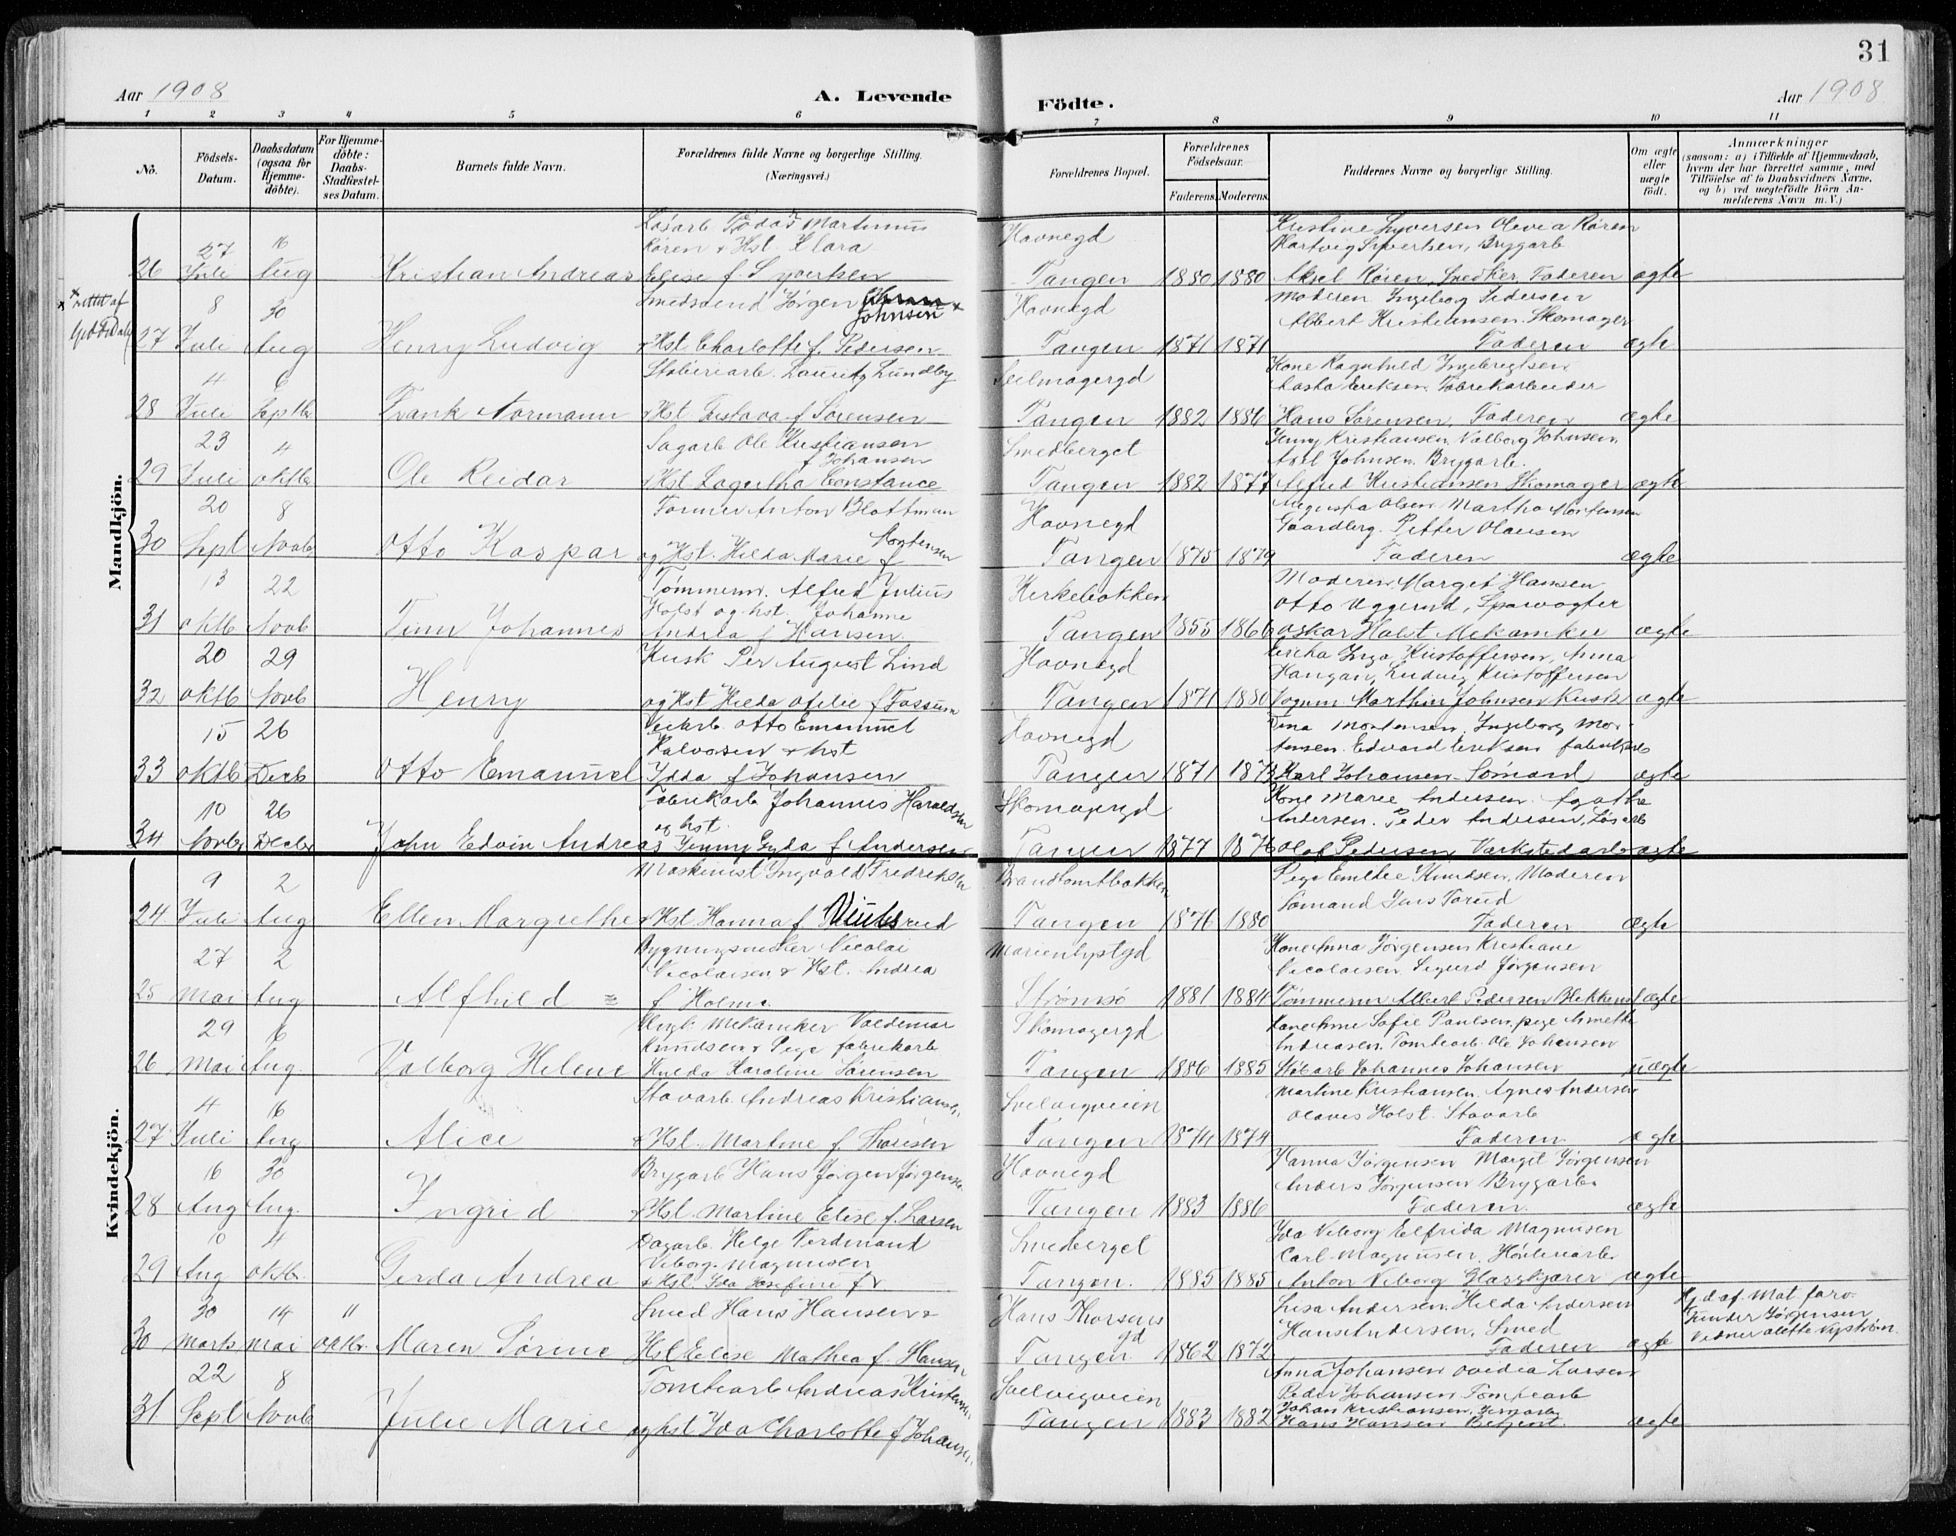 31
Aar 1908
A. Levende
Födte.
Aar 1908
1 2 3 4 5 6 7 8 9 10 11
No.
Födsels-Datum.
Daabsdatum (ogsaa for Hjemme-döbte).
For Hjemme-döbte: Daabs-Stadfæstel-ses Datum.
Barnets fulde Navn.
Forældrenes fulde Navne og borgerlige Stilling.
(Næringsvei.)
Forældrenes Bopæl.
Forældrenes Födselsaar.
Faderens. Moderens.
Faddernes Navne og borgerlige Stilling.
Om ægte eller uægte födt.
Anmærkninger
(saasom: a) i Tilfælde af Hjemmedaab,
hvem der har forrettet samme, med
Tilföielse af to Daabsvidners Navne,
og b) ved uegtefödte Börn An-
melderens Navn m. V.)
Mandkjön.
26 27 Juli 16 Aug Kristian Andreas
Martinus
Røren & Hst. Klara
Elise f. Syvertsen
Havnegd
Tangen 1880 1880
Kristine Syversen Olevia Røren
Hartvig Syvertsen, Bryggarb
Aksel Røren, Snedker, Faderen ægte
rettet af
27 8 Juli 30 Aug Henry Ludvig
Smedsvend Jørgen
Johnsen
& Hst. Charlotte f. Pedersen
Havnegd
Tangen 1871 1871
Moderen Ingeborg Pedersen
Albert Kristiansen. Skomager
Faderen ægte
28 4 Juli 6 Septbr Frank Normann
Støberiarb. Lauritz Lundby
& Hst. Gustava f. Sørensen
Seilmagergd
Tangen 1882 1886
Kone Ragnhild Ingebrigtsen
Eriksen. Fabrikarbeider
Hans Sørensen, Faderen ægte
29 23 Juli 4 oktbr Ole Reidar
Sagarb Ole Kristiansen
f Johansen
& Hst Lagertha Constance
Smedberget
Tangen 1882 1877
Jenny Kristiansen, Valborg Johnsen
Axel Johnsen. Bryggarb.
Alfred Kristiansen Skomager ægte
30 20 Sept 8 Novb Otto Kaspar
Former Anton Blottman
Mortensen
og Hst. Hilda Marie f
Havnegd
Tangen 1875 1879
Augusta Olsen Martha Mortensen
Gaardbrg. Petter Olausen
Faderen ægte
31 13 oktb 22 Novb Finn Johannes
Tømmerm. Alfred Julius
Holst og hst. Johanne
Andrea f Hansen
Kirkebakken
Tangen 1855 1866
Moderen, Marget Hansen
Otto Uggerud, Sporvogter
Oskar Holst Mekaniker ægte
32 20 oktb 29 Novb Henry
Kusk Per August Lind
og Hst Hilda Ofilie f Fossum
Havnegd
Tangen 1871 1880
Ericha Inga Kristoffersen, Anna
Haugan, Ludvig Kristoffersen
Marthin Johnsen Kusk ægte
33 15 oktb 26 Decb Otto Emanuel
Otto Emanuel
Halvorsen & hst
Ydda f Johansen
Havnegd
Tangen 1871 1873
Tina Mortensen, Ingeborg Mor-
tensen. Edvard Eriksen fabrikarb
Karl Johansen Sømand ægte
34 10 Novbr 26 Decbr John Edvin Andreas
Fabrikarb Johannes Haraldsen
og hst.
Jenny Gyda f Andersen
Skomagergd
Tangen 1877 1876
Kone Marie Andersen. Agathe
Andersen. Peder Andersen, Løsarb
Olof Pedersen Værkstedarb ægte
Kvindekjön.
24 9 Juli 2 Aug Ellen Margrethe
Maskinist Ingvald Fredriksen
& Hst Hanna f
Brandtomtbakken
Tangen 1876 1880
Pige Emilie Knudsen, Moderen
Sømand Jens Torud
Faderen ægte
25 27 Mai 2 Aug Alfhild
Bygningssnedker Nicolai
Nicolaisen & Hst. Andrea
f Holme
Marienlystgd
Strømsø 1881 1884
Kone Anna Jørgensen Kristiane
Nicolaisen Sigurd Jørgensen
Tømmerm Albert Pedersen ægte
26 29 Mai 6 Aug. Valborg Helene
Ungk. Mekaniker Valdemar
Knudsen & Pige fabrikarb
Hulda Karoline Sørensen
Skomagergd
Tangen 1886 1885
Kone Anne Sofie Paulsen, pige Anette
Andreasen. Tomtearb. Ole Johansen
Støbarb Johannes Johansen uægte
27 4 Juli 16 Aug Alice
Stovarb Andreas Kristiansen
& Hst. Martine f Thoresen
Svelvigveien
Tangen 1874 1874
Martine Kristiansen, Agnes Andersen
Olaves Holst. Stovarb
Faderen ægte
28 16 Aug 30 Aug. Ingrid
Bryggarb Hans Jørgen Jørgensen
& Hst. Martine Elise f. Larsen
Havnegd
Tangen 1883 1886
Hanna Jørgensen Margit Jørgensen
Anders Jørgensen Bryggarb
Faderen ægte
29 10 Aug 4 oktbr. Gerda Andrea
Dagarb. Helge Ferdinand
Viborg. Magnusen
& Hst. Ida Josefine f.
Smedberget
Tangen. 1885 1885
Ida Viborg Elfrida Magnusen
Carl Magnusen,
Anton Viborg ægte
30 30 Marts 14 Mai 11 oktbr. Maren Sørine
Smed Hans Hansen &
Hst Elise Mathea f. Hansen
Hans Thorsens
gd
Tangen 1862 1872
Lisa Andersen. Hilda Andersen
Hans Andersen, Smed
Faderen ægte
Hjd af Mat
Jørgensen
31 22 Sept 8 Novb Julie Marie
Tomtearb Andreas Kristensen
og hst Ida Charlotte f Johansen
Svelvigveien
Tangen 1883 1882
Anna Johansen Ovidia Larsen
Peder Johansen Tomtearb
Johan Kristiansen,
Hans Hansen Betjent. ægte